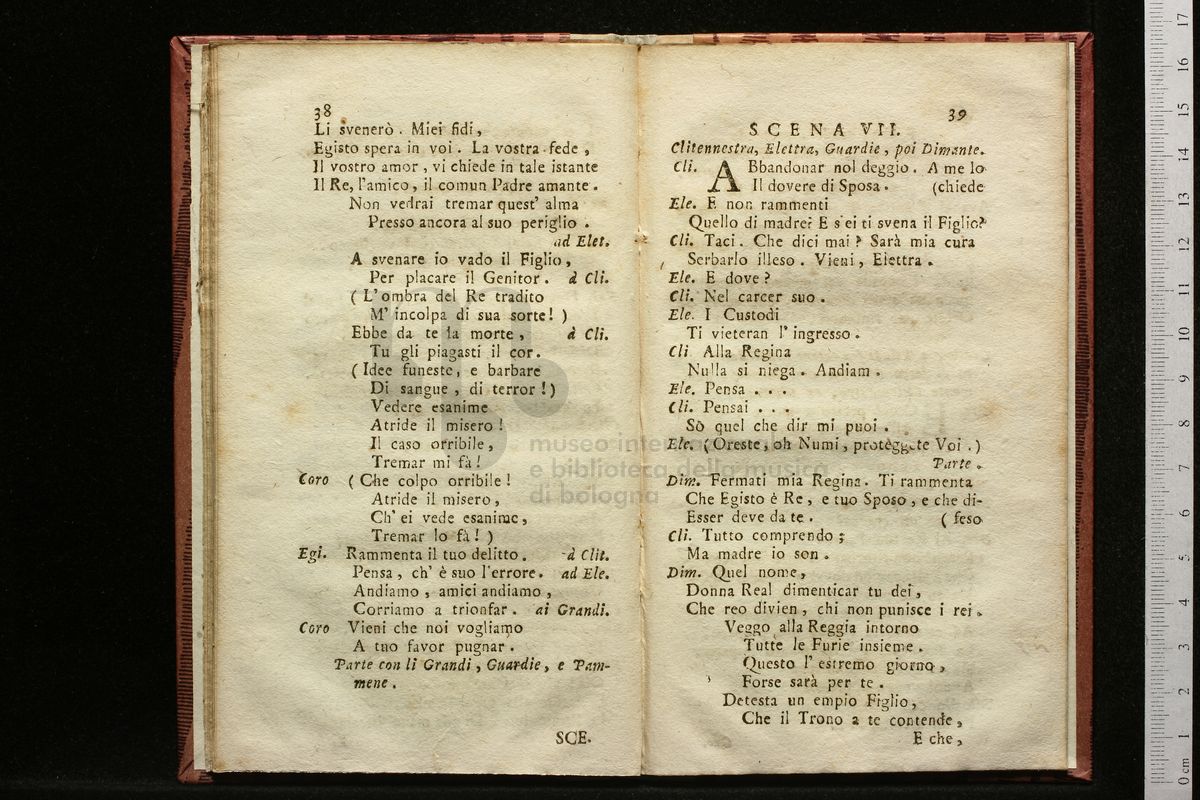 38
Li svenerò. Miei fidi,
Egisto spera in voi. La vostra fede,
Il vostro amor, vi chiede in tale istante
Il Re, l'amico, il comun Padre amante.
Non vedrai tremar quest' alma
Presso ancora al suo periglio.
ad Elet.
A svenare io vado il Figlio,
Per placare il Genitor. à Cli.
(L'ombra del Re tradito
M' incolpa di sua sorte!)
Ebbe da te la morte, à Cli.
Tu gli piagasti il cor.
(Idee funeste, e barbare
Di sangue, di terror!)
Vedere esanime
Atride il misero!
Il caso orribile,
Tremar mi fà!
Coro (Che colpo orribile!
Atride il misero,
Ch' ei vede esanime,
Tremar lo fà!)
Egi. Rammenta il tuo delitto. à Clit.
Pensa, ch' è suo l'errore. ad Ele.
Andiamo, amici andiamo,
Corriamo a trionfar. ai Grandi.
Coro Vieni che noi vogliamo
A tuo favor pugnar.
Parte con li Grandi, Guardie, e Pam-
mene.
SCE.
39
SCENA VII.
Clitennestra, Elettra, Guardie, poi Dimante.
Cli. ABbandonar nol deggio. A me lo
Il dovere di Sposa. (chiede
Ele. E non rammenti
Quello di madre? E s'ei ti svena il Figlio?
Cli. Taci. Che dici mai? Sarà mia cura
Serbarlo illeso. Vieni, Elettra.
Ele. E dove?
Cli. Nel carcer suo.
Ele. I Custodi
Ti vieteran l' ingresso.
Cli Alla Regina
Nulla si niega. Andiam.
Ele. Pensa...
Cli. Pensai...
Sò quel che dir mi puoi.
Ele. (Oreste, oh Numi, protèggete Voi.)
Parte.
Dim. Fermati mia Regina. Ti rammenta
Che Egisto è Re, e tuo Sposo, e che di-
Esser deve da te. (feso
Cli. Tutto comprendo;
Ma madre io son.
Dim. Quel nome,
Donna Real dimenticar tu dei,
Che reo divien, chi non punisce i rei.
Veggo alla Reggia intorno
Tutte le Furie insieme.
Questo l' estremo giorno,
Forse sarà per te.
Detesta un empio Figlio,
Che il Trono a te contende,
E che,
museo internazionale
e biblioteca della musica
di bologna
0 cm 1 2 3 4 5 6 7 8 9 10 11 12 13 14 15 16 17